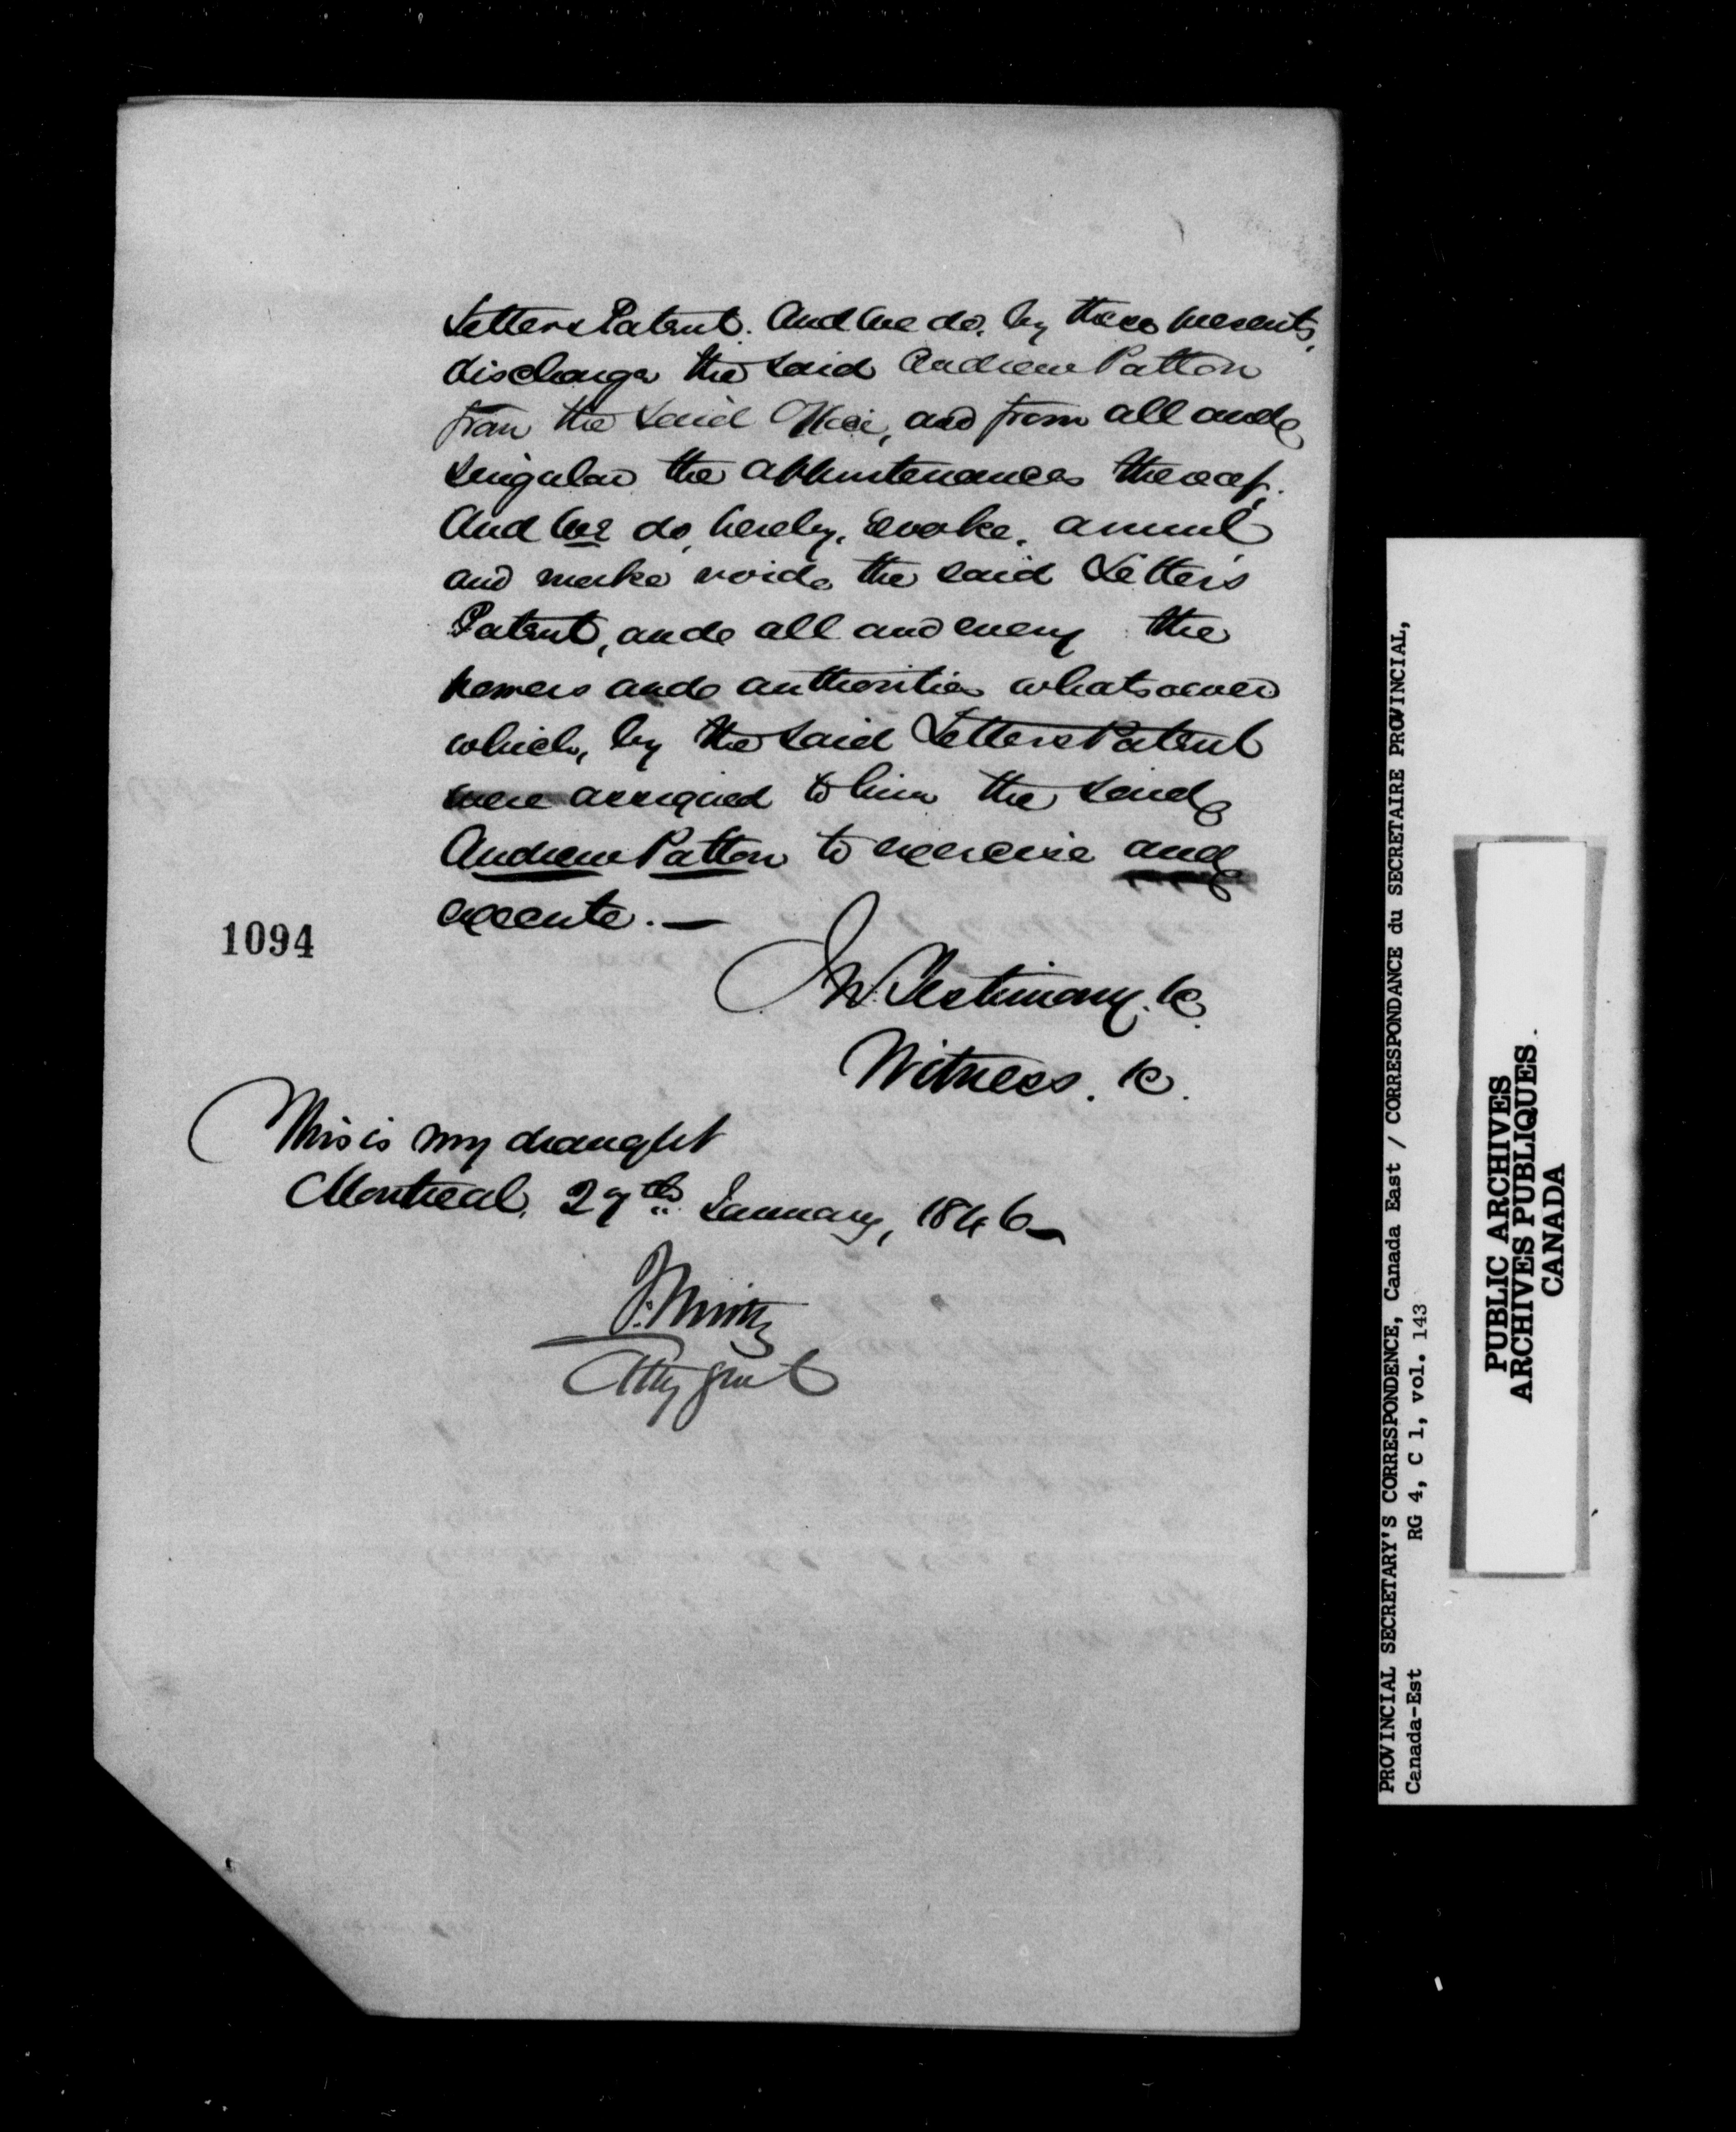 Letters Patent. And We do, by these presents,
discharge the said Andrew Patton
from the said Office, and from all and
singular the appurtenances thereof.
And We do, hereby, revoke, annul,
and make void, the said Letters
Patent, and all and every the
powers and authorities whatsoever
which, by the said Letters Patent
were assigned to him the said
Andrew Patton to exercise and
execute. —
1094
In Testimony. &c.
Witness. &c.
This is my draught
Montreal, 29th January, 1846
J. Smith
Atty Genl
PROVINCIAL SECRETARY'S CORRESPONDENCE, Canada East / CORRESPONDANCE du SECRETAIRE PROVINCIAL,
Canada-Est RG 4, C 1, vol. 143
PUBLIC ARCHIVES
ARCHIVES PUBLIQUES.
CANADA